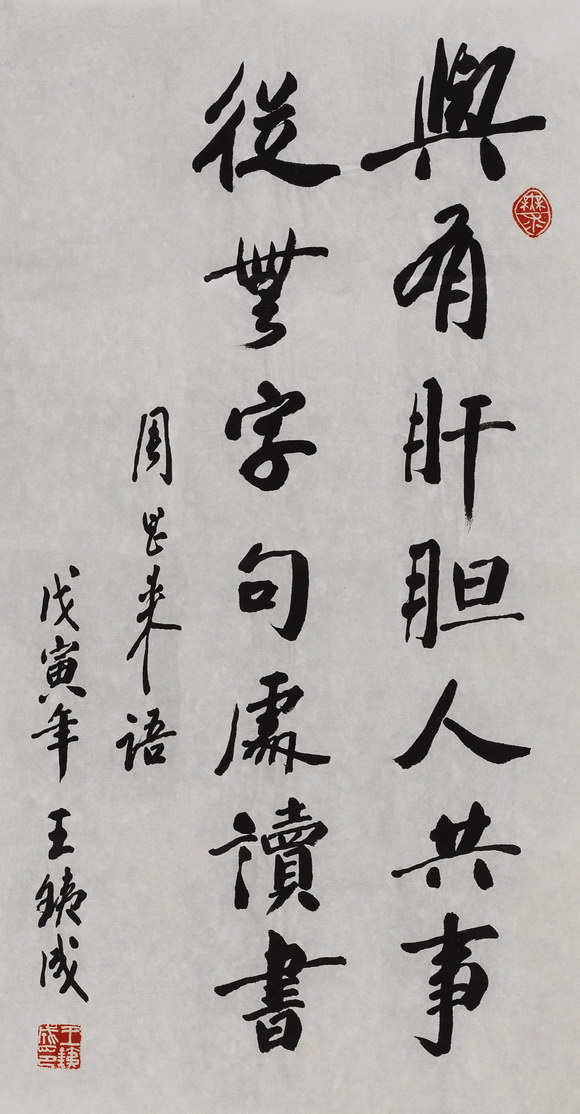 與有肝胆人共事
從無字句處讀書
周恩来语
戊寅年 王铁成